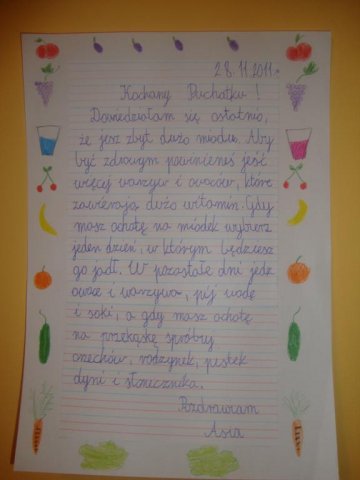 28.11.2011r.
Kochany Puchatku!
Dowiedziałam się ostatnio,
że jesz zbyt dużo miodu. Aby
być zdrowym powinieneś jeść
więcej warzyw i owoców, które
zawierają dużo witamin. Gdy
masz ochotę na miodek wybierz
jeden dzień, w którym będziesz
go jadł. W pozostałe dni jedz
owoce i warzywa, pij wodę
i soki, a gdy masz ochotę
na przekąskę spróbuj
orzechów, rodzynek, pestek
dyni i słonecznika.
Pozdrawiam
Asia